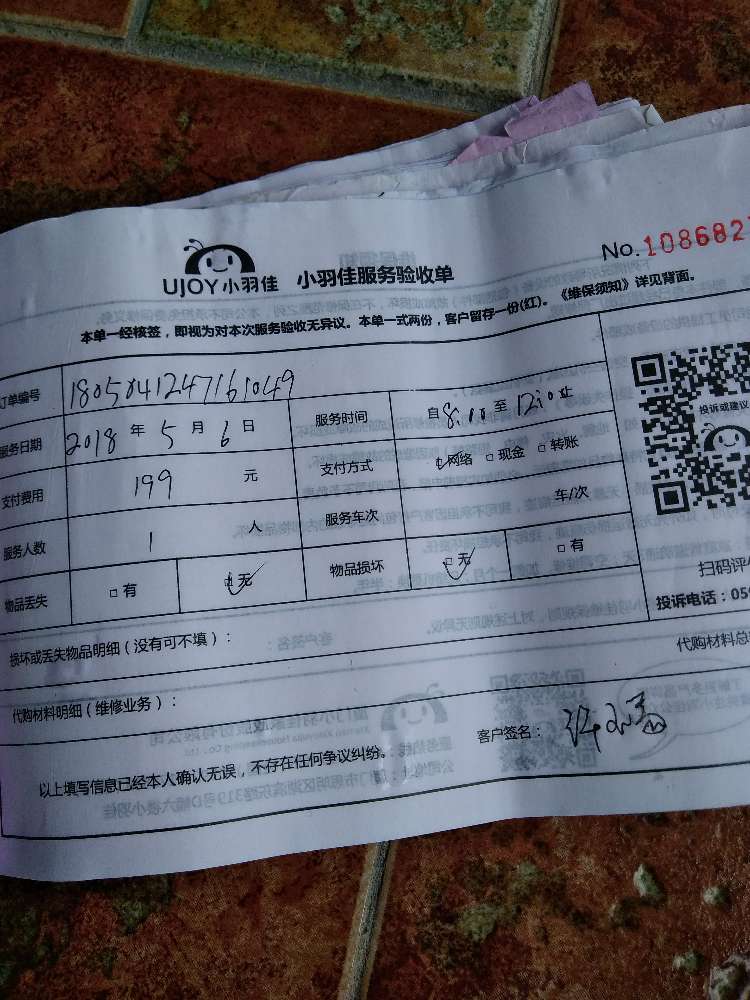 UJOY小羽佳 小羽佳服务验收单
No.1086827
本单一经核签，即视为对本次服务验收无异议。本单一式两份，客户留存一份(红)。《维保须知》详见背面。
订单编号 1805041247161049
服务日期 2018年5月6日 服务时间 自8:00至12:00止
支付费用 199元 支付方式 网络 现金 转账
服务人数 1人 服务车次 车/次
物品丢失 有 无 物品损坏 无 有
投诉或建议
扫码评
投诉电话：05
损坏或丢失物品明细（没有可不填）：
代购材料总
代购材料明细（维修业务）：
客户签名：
以上填写信息已经本人确认无误，不存在任何争议纠纷。